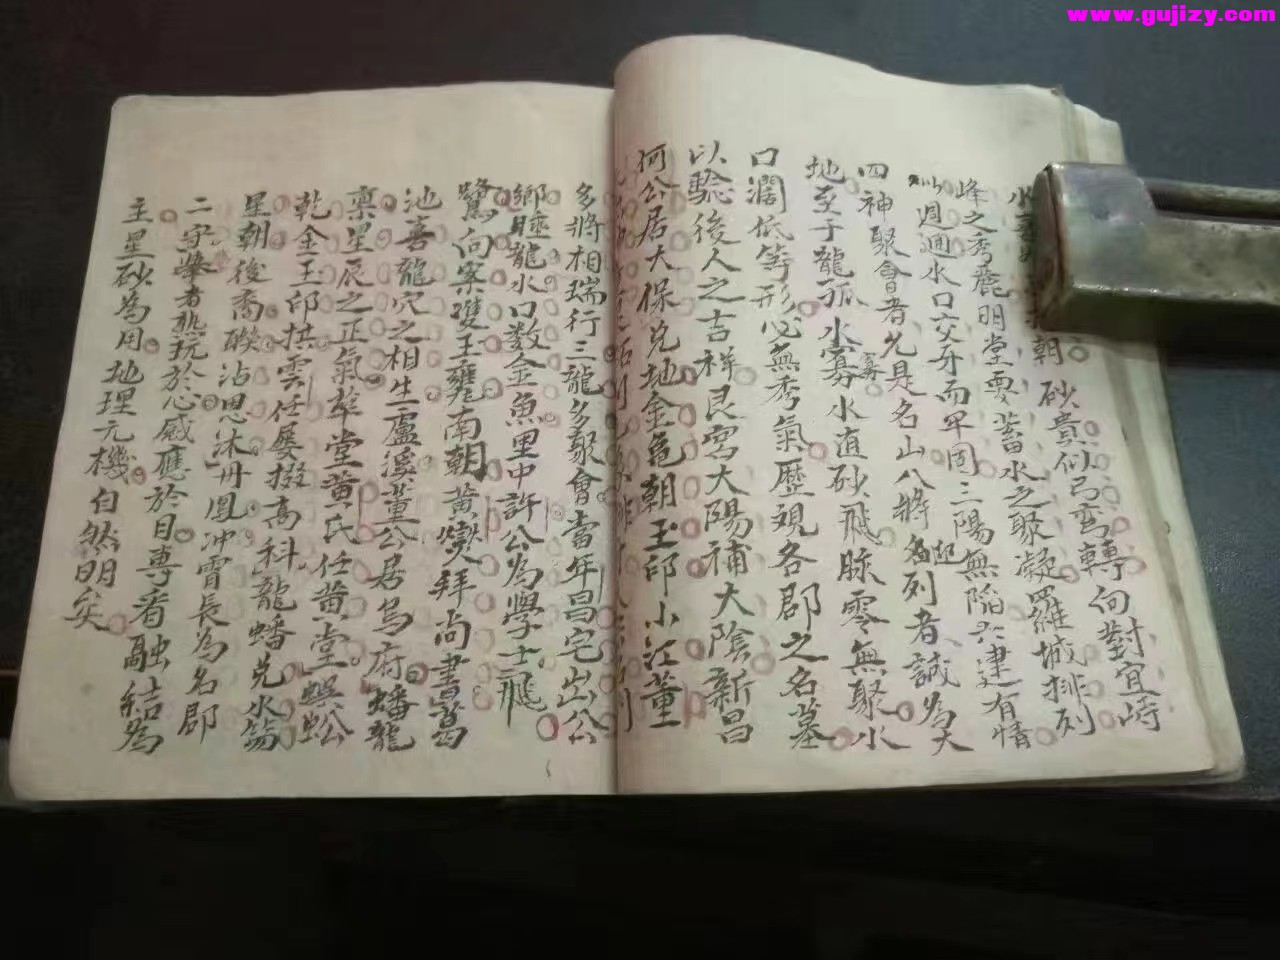 www.gujizy.com
水喜 朝砂貴似弓弯轉向對宜峙
峰之秀麗明堂要蓄水之聚凝羅城排列
以週迴水口交牙而罕固三陽無陷六建有情
四神聚會者允是名山八將起列者誠為大
地至于龍孤水寡水直砂飛脉零無聚水
口濶低等形必無秀氣歷覌各郡之名墓
以騐後人之吉祥艮宮大陽補大陰新昌
何公居大保兑地金龟朝玉印小江董
多將相瑞行三龍多聚會當年昌宅出公
鄉睡龍水口数金魚里中許公為學士飛
鷺向案雙玉甕南朝黃爕拜尚書葛
池喜龍穴之相生盧溪董公居烏府蟠龍
禀星辰之正氣牽堂黄氏任黄堂蜈蚣
乾金玉印拱雲任屡掇高科龍蟠兑水篇
星朝後喬聯沾恩沐丹鳳冲霄長為名郡
二守學者熟玩於心感應於目專看融結為
主星砂為用地理元機自然明矣